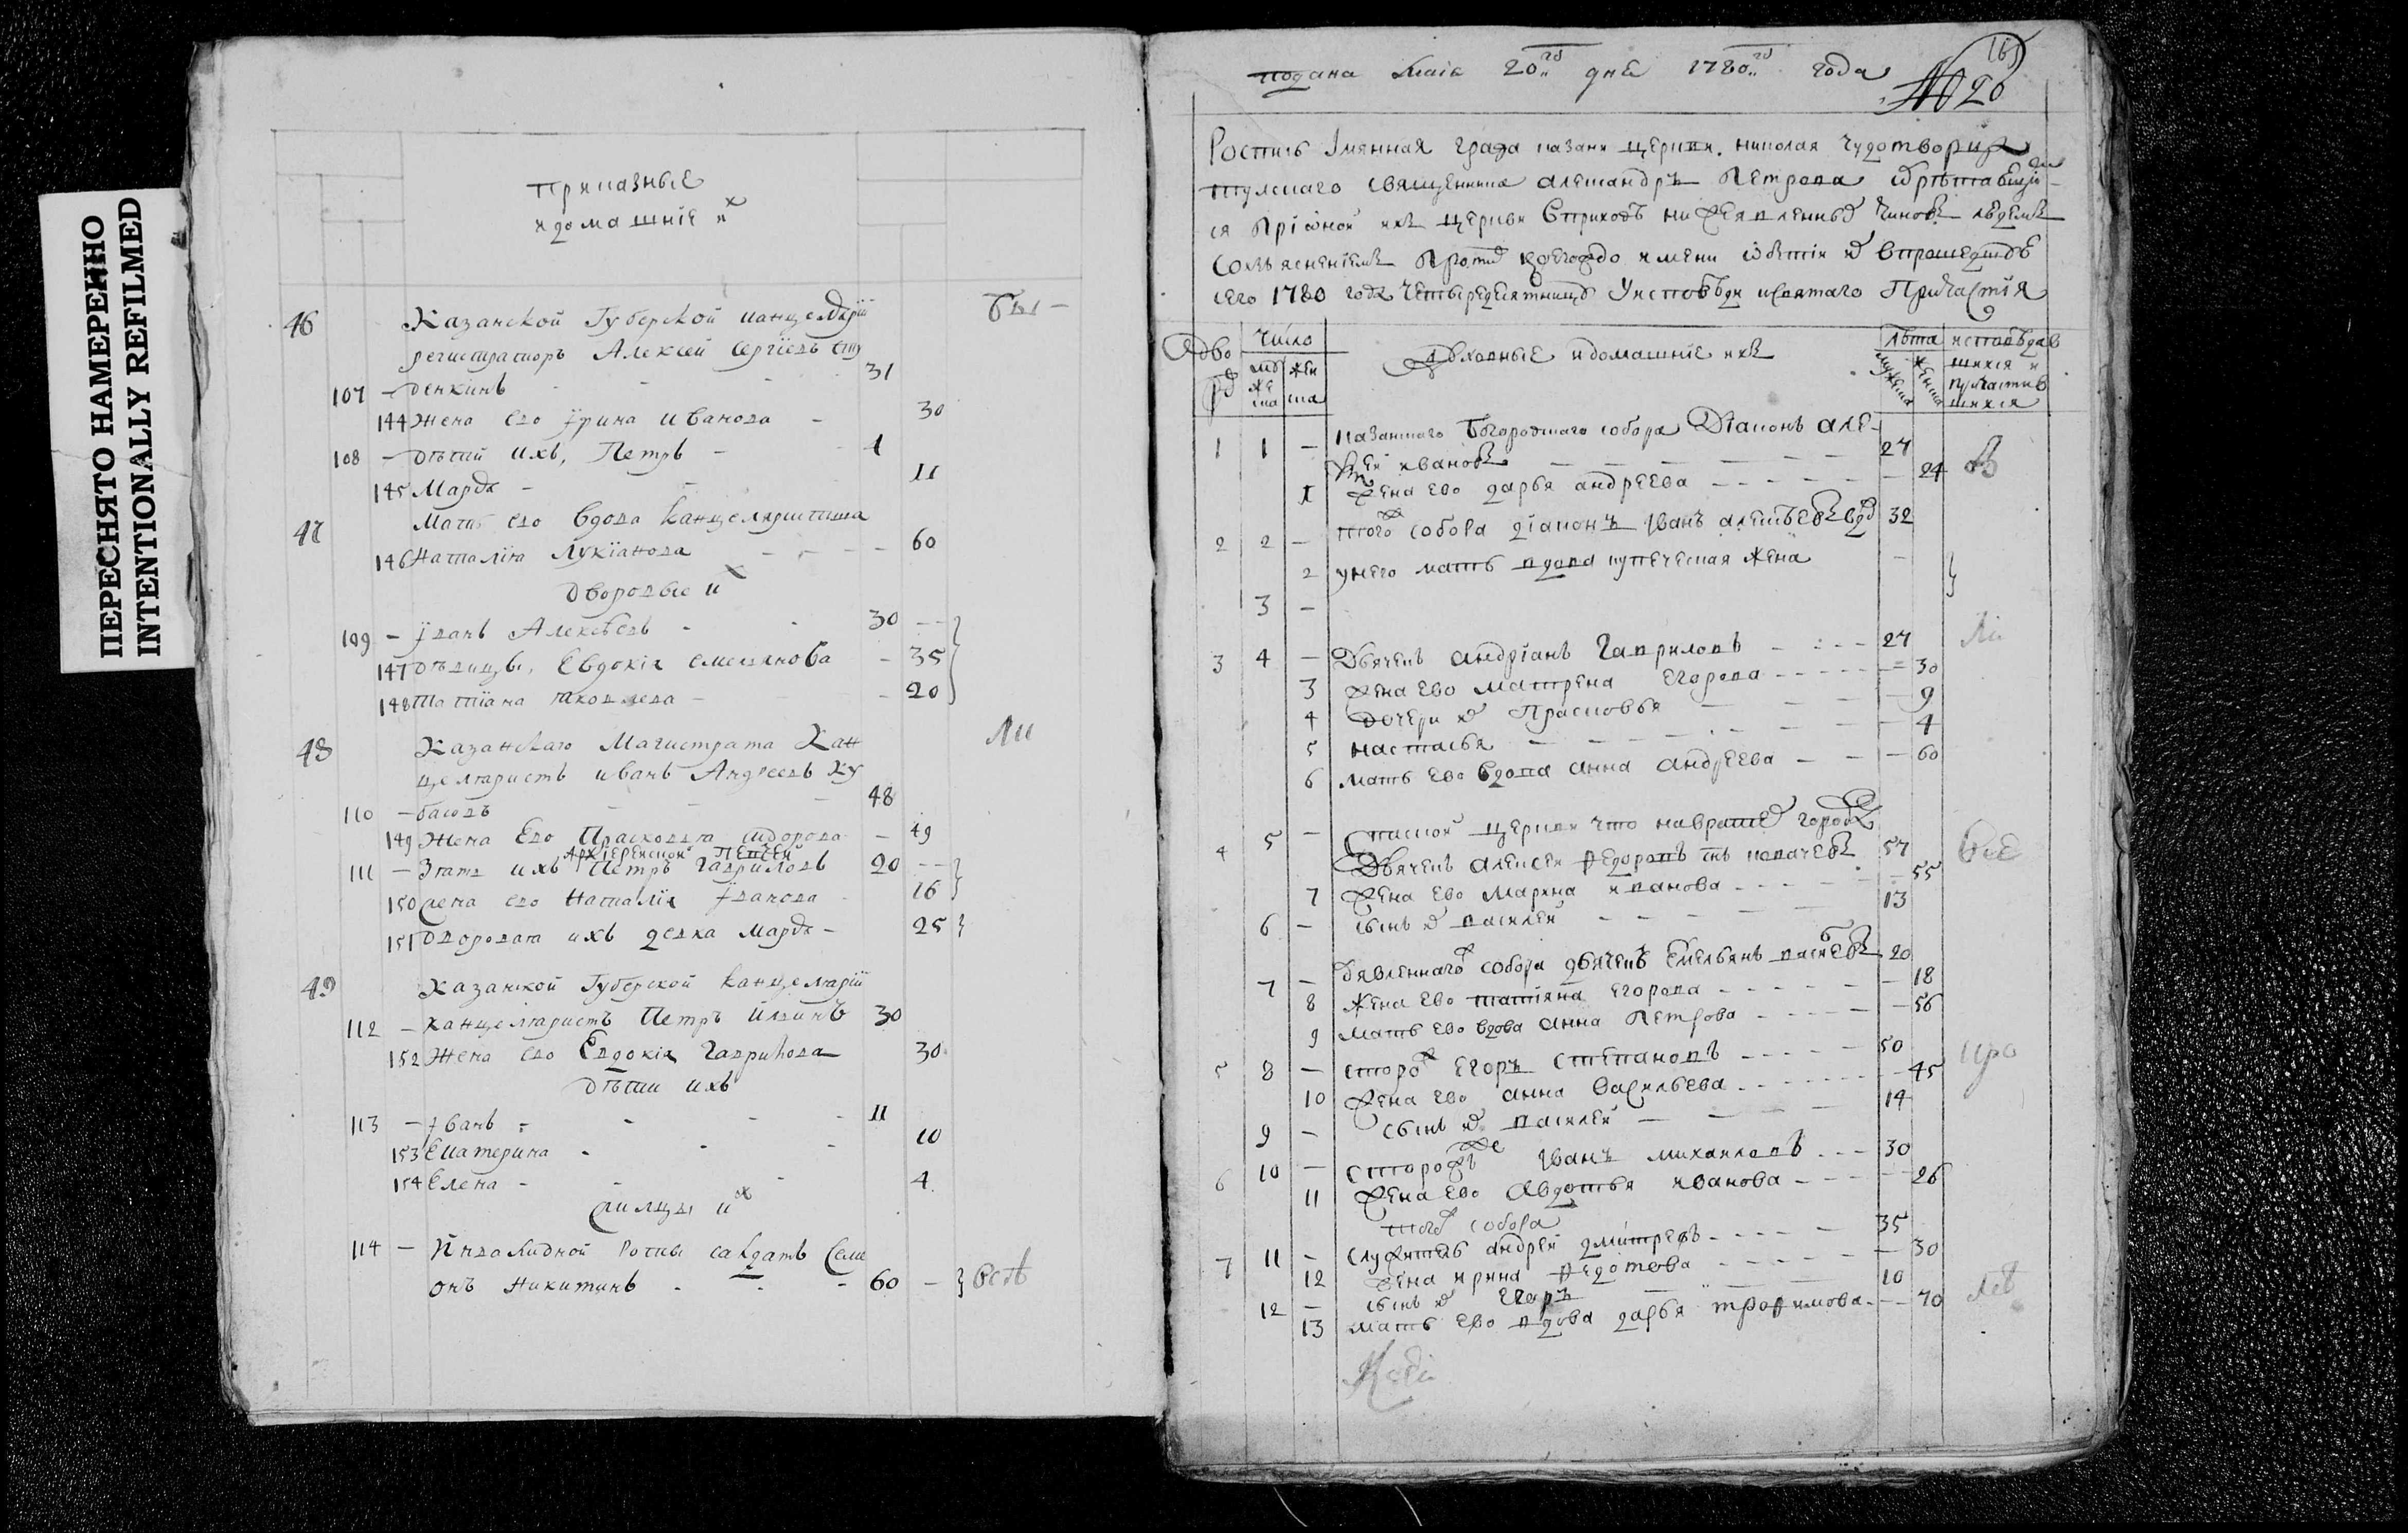 ПЕРЕСНЯТО НАМЕРЕННО
INTENTIONALLY REFILMED
приказные
и домашние их
46 Казанской Губерской канцелярїи бы
регистраторъ Алексей Сергѣевъ сту
107 — денкинъ 31
144 Жена ево Їрина Иванова 30
108 — дѣтии ихъ, Петръ 1
145 Марѳа 11
47 Мать ево вдова канцеляристша
146 Наталїя Лукїанова 60
Дворовые их
109 — Їванъ Алексѣевъ 30
147 дѣвицы, Евдокія емельянова 35
148 Татїана яковлева 20
48 Казанскаго Магистрата Кан Ли
целяристъ иванъ Андреевъ Ку
110 — басовъ 48
149 Жена Ево Прасковья сидорова 49
Архїерейской Певчей
111 — Зять ихъ Петръ Гавриловъ 20
150 жена ево Наталїя Їванова 16
151 Дворовая ихъ девка Марѳа 25
49 Казанской Губерской канцелярїи
112 — канцеляристъ Петръ Ильинъ 30
152 Жена ево Евдокія Гаврилова 30
Дѣтии ихъ
113 — Їванъ 11
153 Екатерина 10
154 Елена 4
жилцы их
114 — Инвалидной роты салдатъ Семи
онъ Никитинъ 60
подана маїя 20го дня 1780го года №20
Роспись Имянная града казани церкви николая чудотворца
тулскаго священника александръ Петрова обрѣтающих
ся при оной ихъ церкви в приходѣ нижеявленных чиновъ людемъ
со изъяснениемъ против коегождо имени о бытии их в прошедшую
сего 1780 года четыредесятницу у исповѣди и святаго Причастїя
дво число Духовные и домашнїе ихъ лѣта исповѣдав
ров муже жен мужска женска шихся и
ска ска причастив
шихся
1 1 — казанскаго богородцкаго собора Дїаконъ але- 27
ѯей ивановъ
1 жена ево дарья андреева 24
2 2 — того ж собора дїаконъ Иванъ алексѣевъ вдов 32
2 у него мать вдова купеческая жена —
3 —
3 4 — Дьячекъ андрїанъ Гавриловъ 27 Ли
3 жена ево матрена Егорова 30
4 дочери их Прасковья 9
5 настасья 4
6 мать ево вдова анна андреева 60
4 5 — Спаской церкви что на вратех города
Дьячекъ алексей Федоровъ снъ 57
7 жена ево Марина иванова 55
6 — сынъ их василей 13
7 — явленнаго собора дьячекъ Емельянъ васильевъ 20
8 жена ево татияна Егорова 18
9 мать ево вдова анна Петрова 56
5 8 — сторож Егоръ Степановъ 50
10 жена ево анна Васильева 45
9 — сынъ их василей 14
6 10 — сторожъ Иванъ михаиловъ 30
11 жена ево Авдотья иванова 26
того ж собора
7 11 — служитель андрей дмитревъ 35
12 жена ирина Федотова 30
12 — сынъ их Егоръ 10
13 мать ево вдова дарья трофимова 70